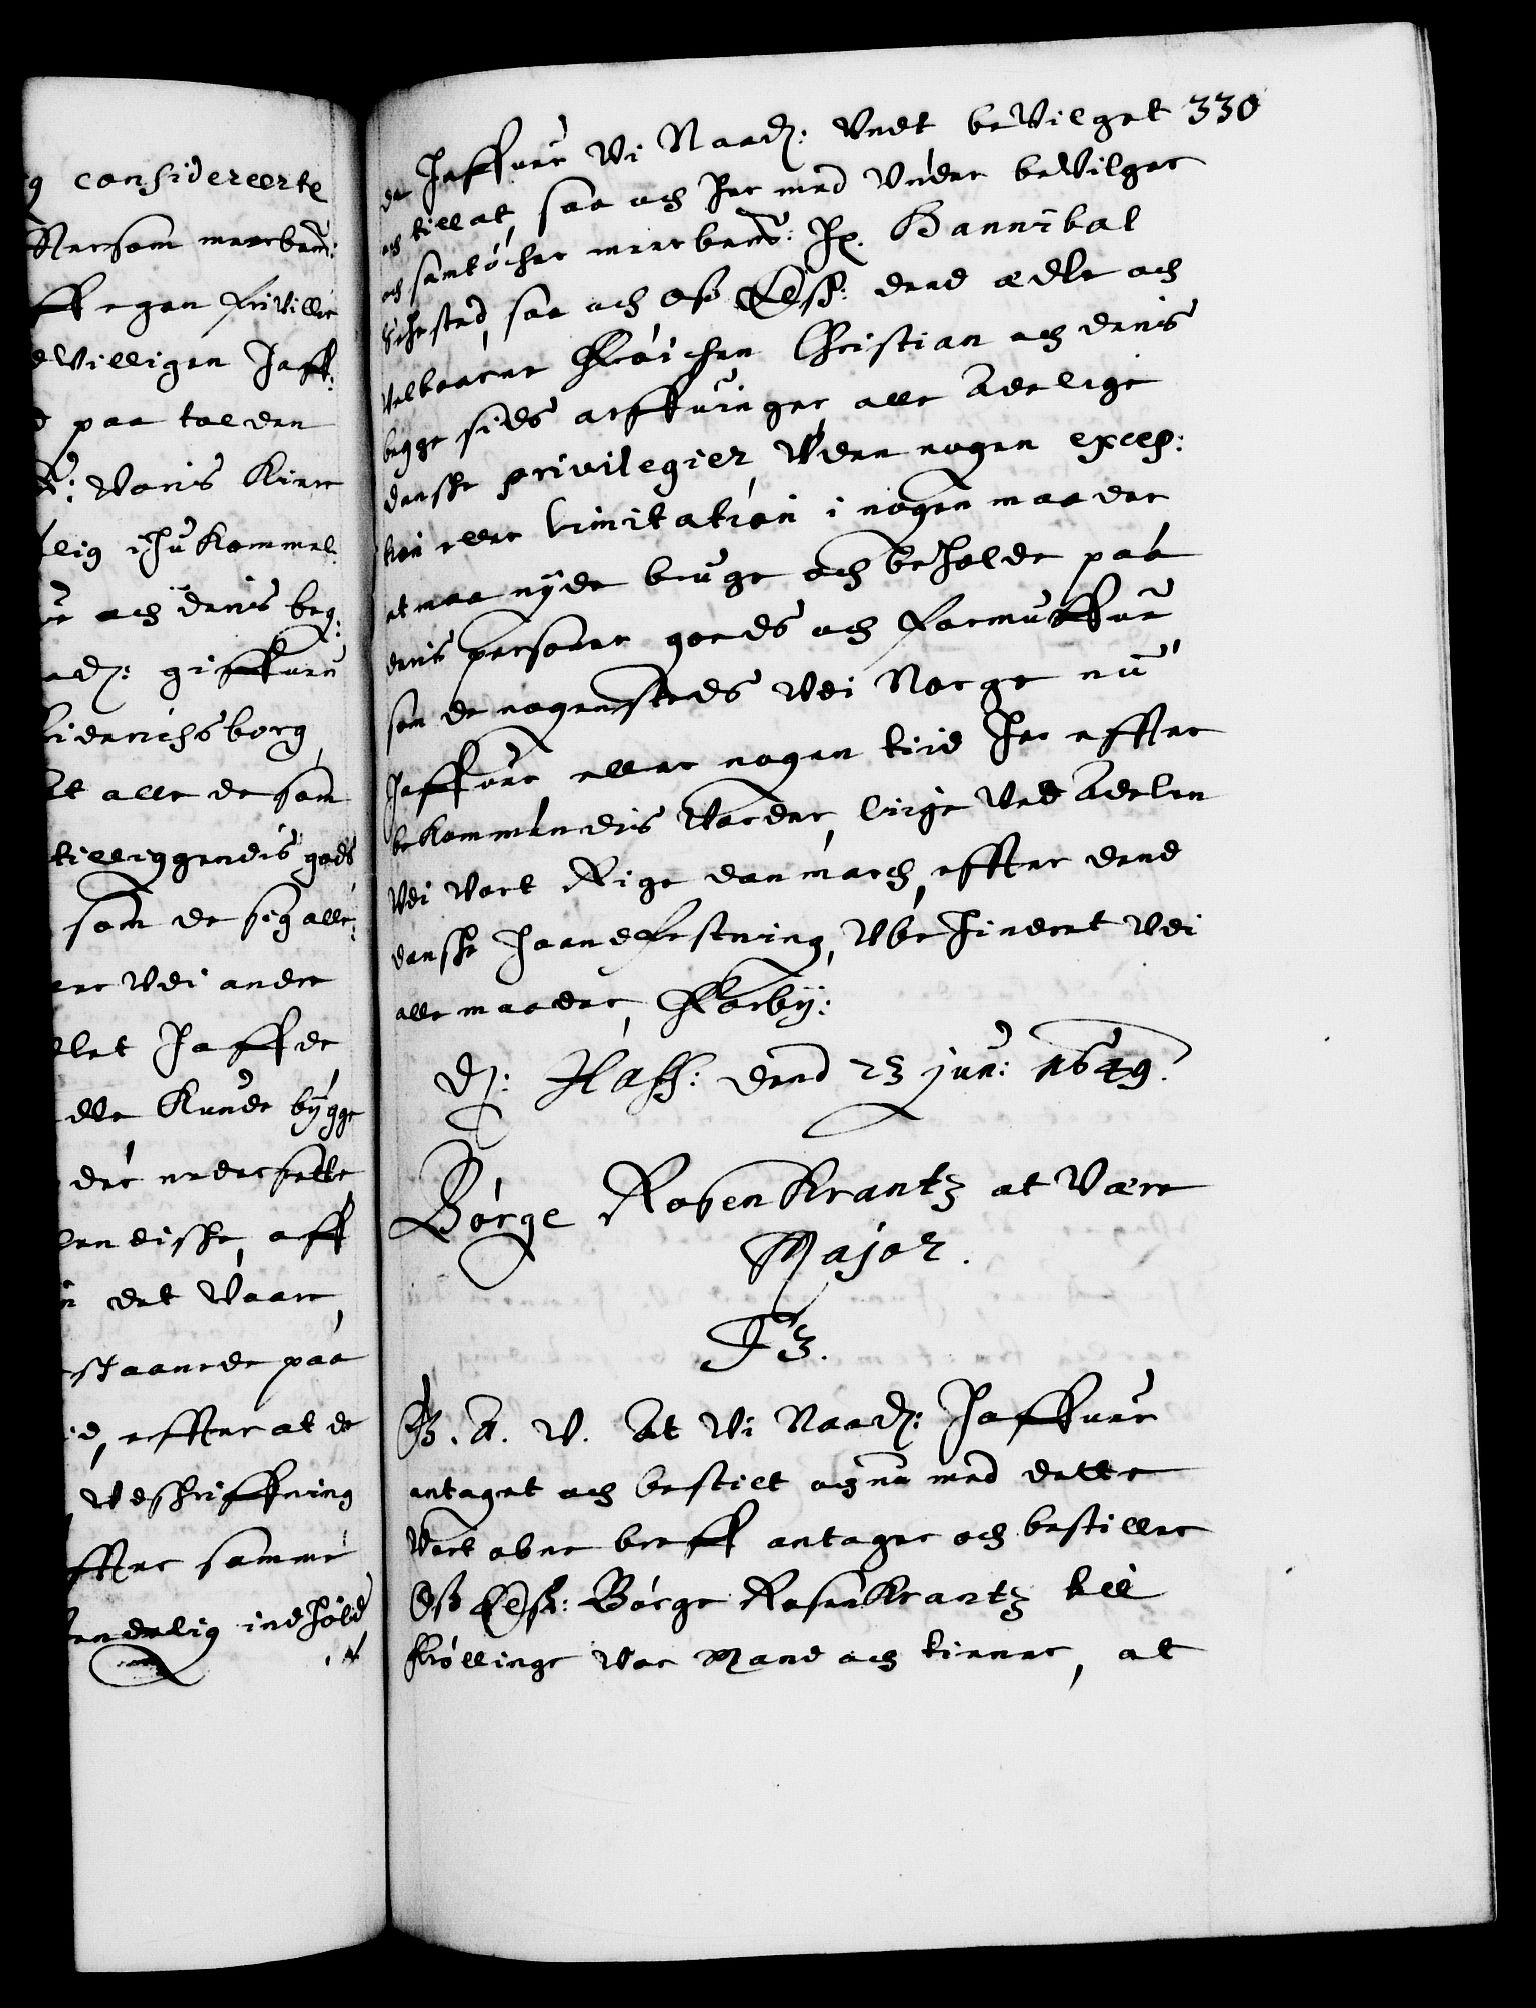 g considereerte
Aarsom meerbem:
ff egen friville
dvilligen haff:
paa tolden
voris Kiere
lig ihukommel
och denis beg:
ad: giffuen
Fiderichsborg
At alle de som
tilliggendis gods
som de sig alle:
ere vdi andre
let haffde
dle Kunde bygge
der nedersette
lendiske, aff
det vaare,
staaende paa
d, effter at de
vdskriffning
ffter samme
endelig indhold
330
de haffuer Vi Naad: Vndt beVilget
och tillat, saa och her med Vnder beVilger
och samtøcher meerbem: Hr. Hannibal
Sehested, saa och Oss Elsk: dend ædle och
Velbaarne Frøichen Christian och denis
begge sids arffuinger alle Adelige
danske privilegier, Vden nogen excep:
tion eller limitation i nogen maader
at maa nyde bruge och beholde paa
denis personer goeds och formuffue
som de nogensteds Vdi Norge nu
haffuer eller nogen tiid her effter
bekommendis Vorder, liige Ved Adelen
Vdi Vort Rige danmarch, effter dend
danske haandfestning, Vbehindert Vdi
alle maader, Forby:
D: Haff: dend 23 jun: 1649.
Børge Rosenkrantz at Være
Major.
F3.
G. A. V. At Vi Naad: haffuer
antaget och bestilt och nu med dette
Vort obne breff antager och bestiller
Oss Elsk: Børge Rosenkrantz till
Ørllinge Vor Mand och tienner, at